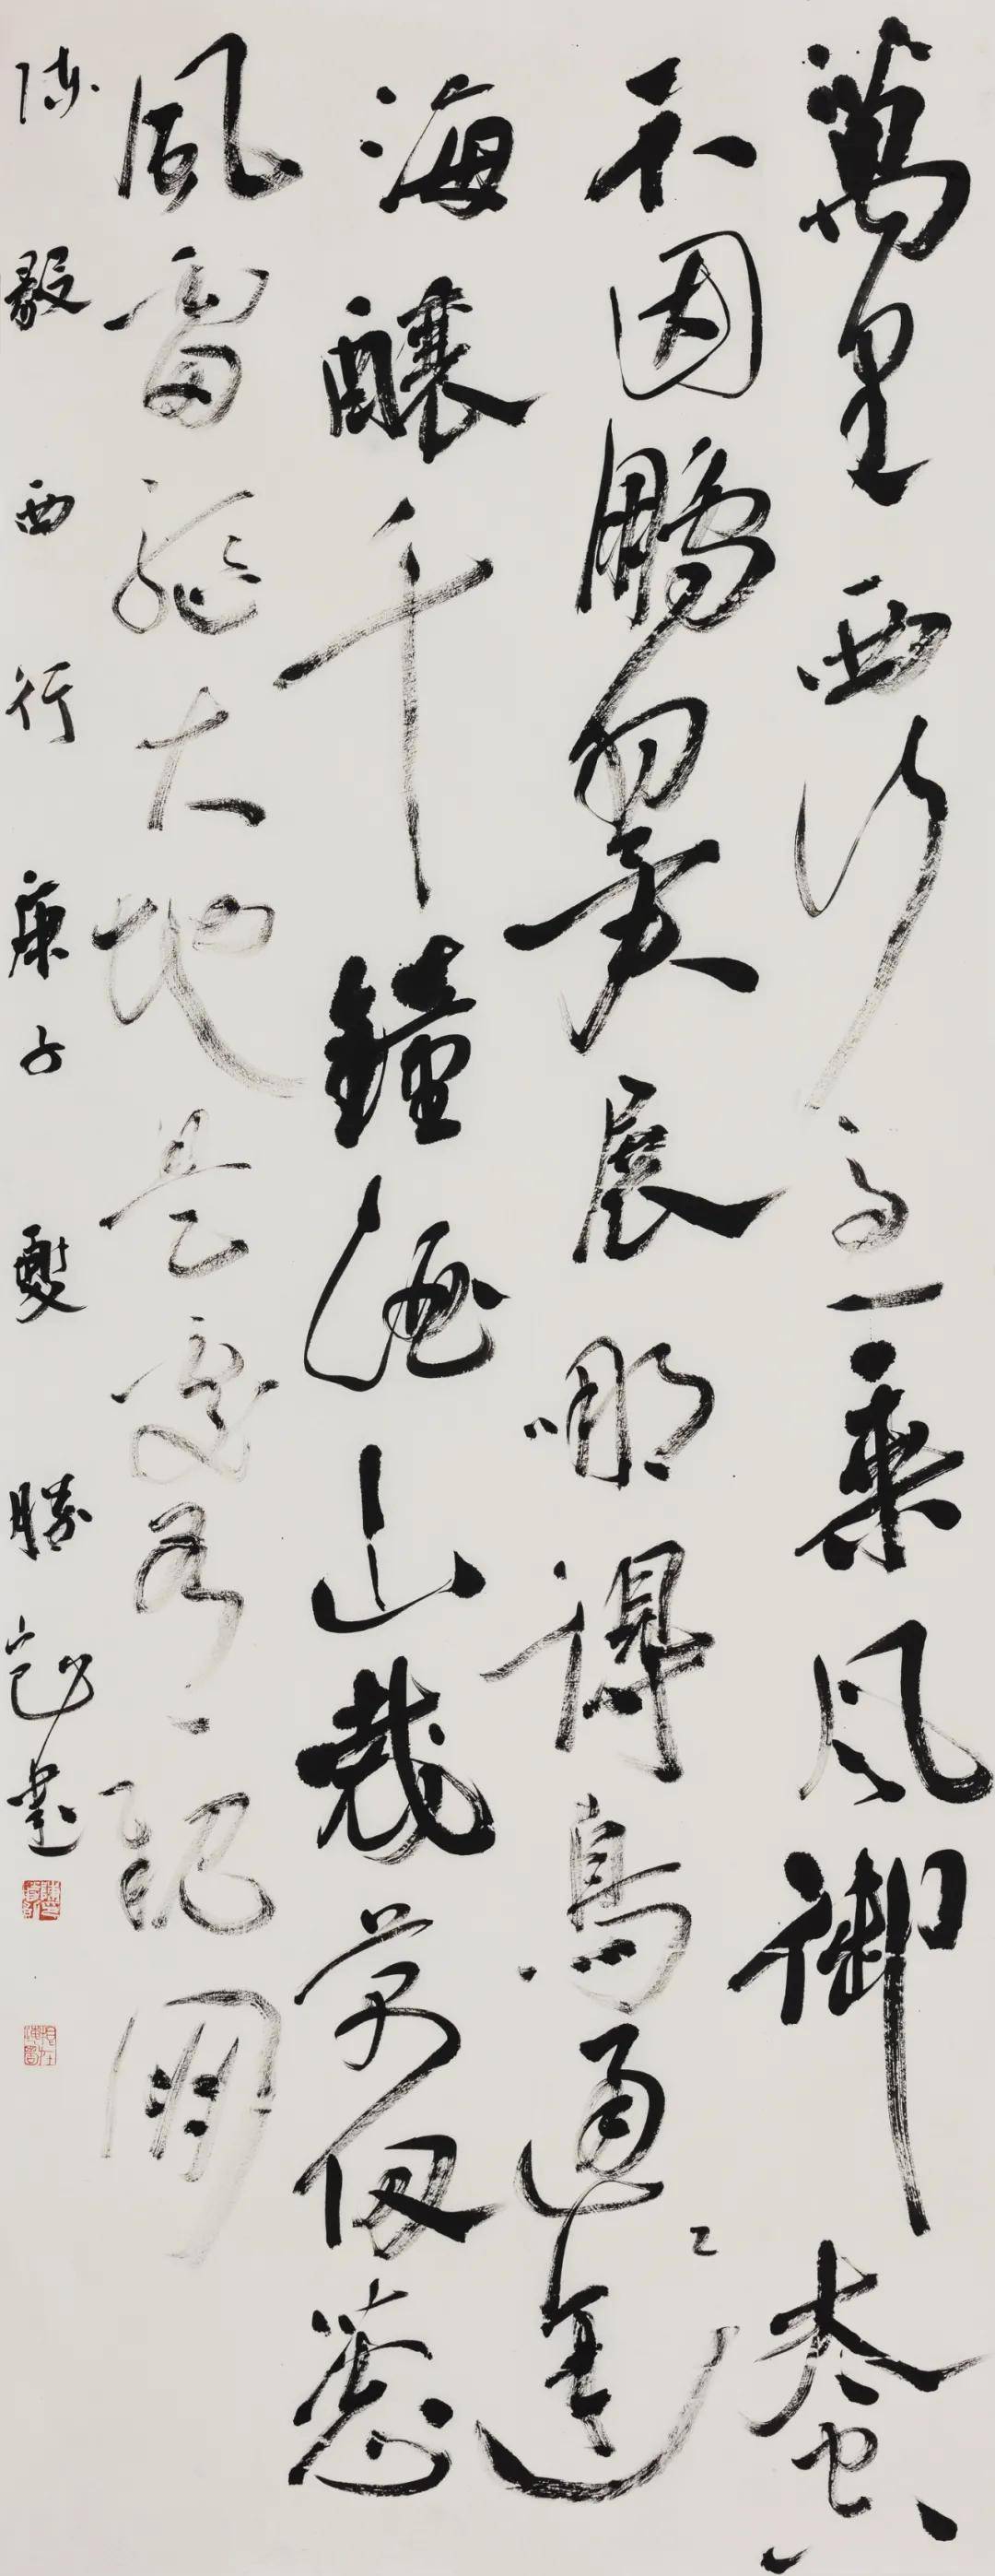 萬里西行急乘风御太空
不因鵬翼展哪得鳥通途
海釀千鐘酒山栽萬仞葱
風雷驅大地是處有親朋
陈毅西行庚子夏勝